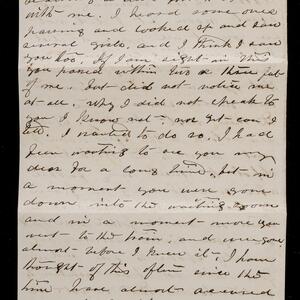 with me. I heard some one
passing and looked up and saw
several girls, and I think I saw
you too. If I am right in this
you passed within two or three feet
of me. but did not notice me
at all. Why I did not speak to
you I know not - nor yet can I
tell. I wanted to do so. I had
been waiting to see you my
dear for a long time, but in
a moment you were gone
down into the waiting room
and in a moment more you
went to the train, and were gone
almost before I knew it. I have
thought of this often since the
time have almost accused